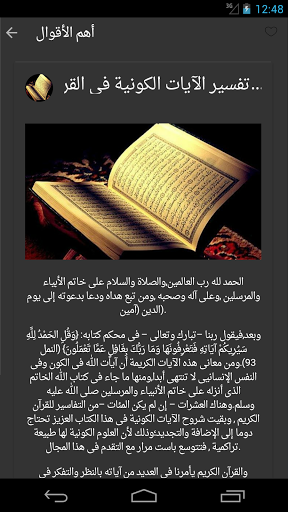 12:48
أهم الأقوال
تفسير الآيات الكونية فى القر...
الحمد لله رب العالمين,والصلاة والسلام على خاتم الأنبياء
والمرسلين ,وعلى آله وصحبه ,ومن تبع هداه ودعا بدعوته إلى يوم
الدين (آمين).
وبعد,فيقول ربنا –تبارك وتعالى – فى محكم كتابه: (وَقُلِ الحَمْدُ لِلَّهِ
سَيُرِيكُمْ آيَاتِهِ فَتَعْرِفُونَهَا وَمَا رَبُّكَ بِغَافِلٍ عَمَّا تَعْمَلُونَ) (النمل
93).ومن معانى هذه الآيات الكريمة أن آيات الله فى الكون وفى
النفس الإنسانيى لا تنتهى أبدا,ومنها ما جاء فى كتاب الله الخاتم
الذى أنزله على خاتم الأنبياء والمرسلين صلى الله عليه
وسلم,وهناك العشرات – إن لم يكن المئات –من التفاسير للقرآن
الكريم , وبقيت شروح الآيات الكونية فى هذا الكتاب العزيز تحتاج
دوما إلى الإضافة والتجديد؛وذلك لأن العلوم الكونية لها طبيعة
تراكمية , فتتوسع باست مرار مع التقدم فى هذا المجال.
والقرآن الكريم يأمرنا فى العديد من آياته بالنظر والتفكر فى